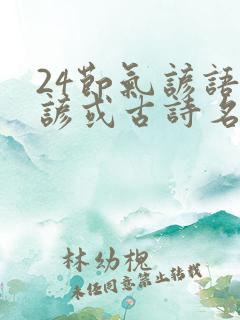 24節氣諺語
諺或古詩名
林幼槐
未經同意禁止轉載